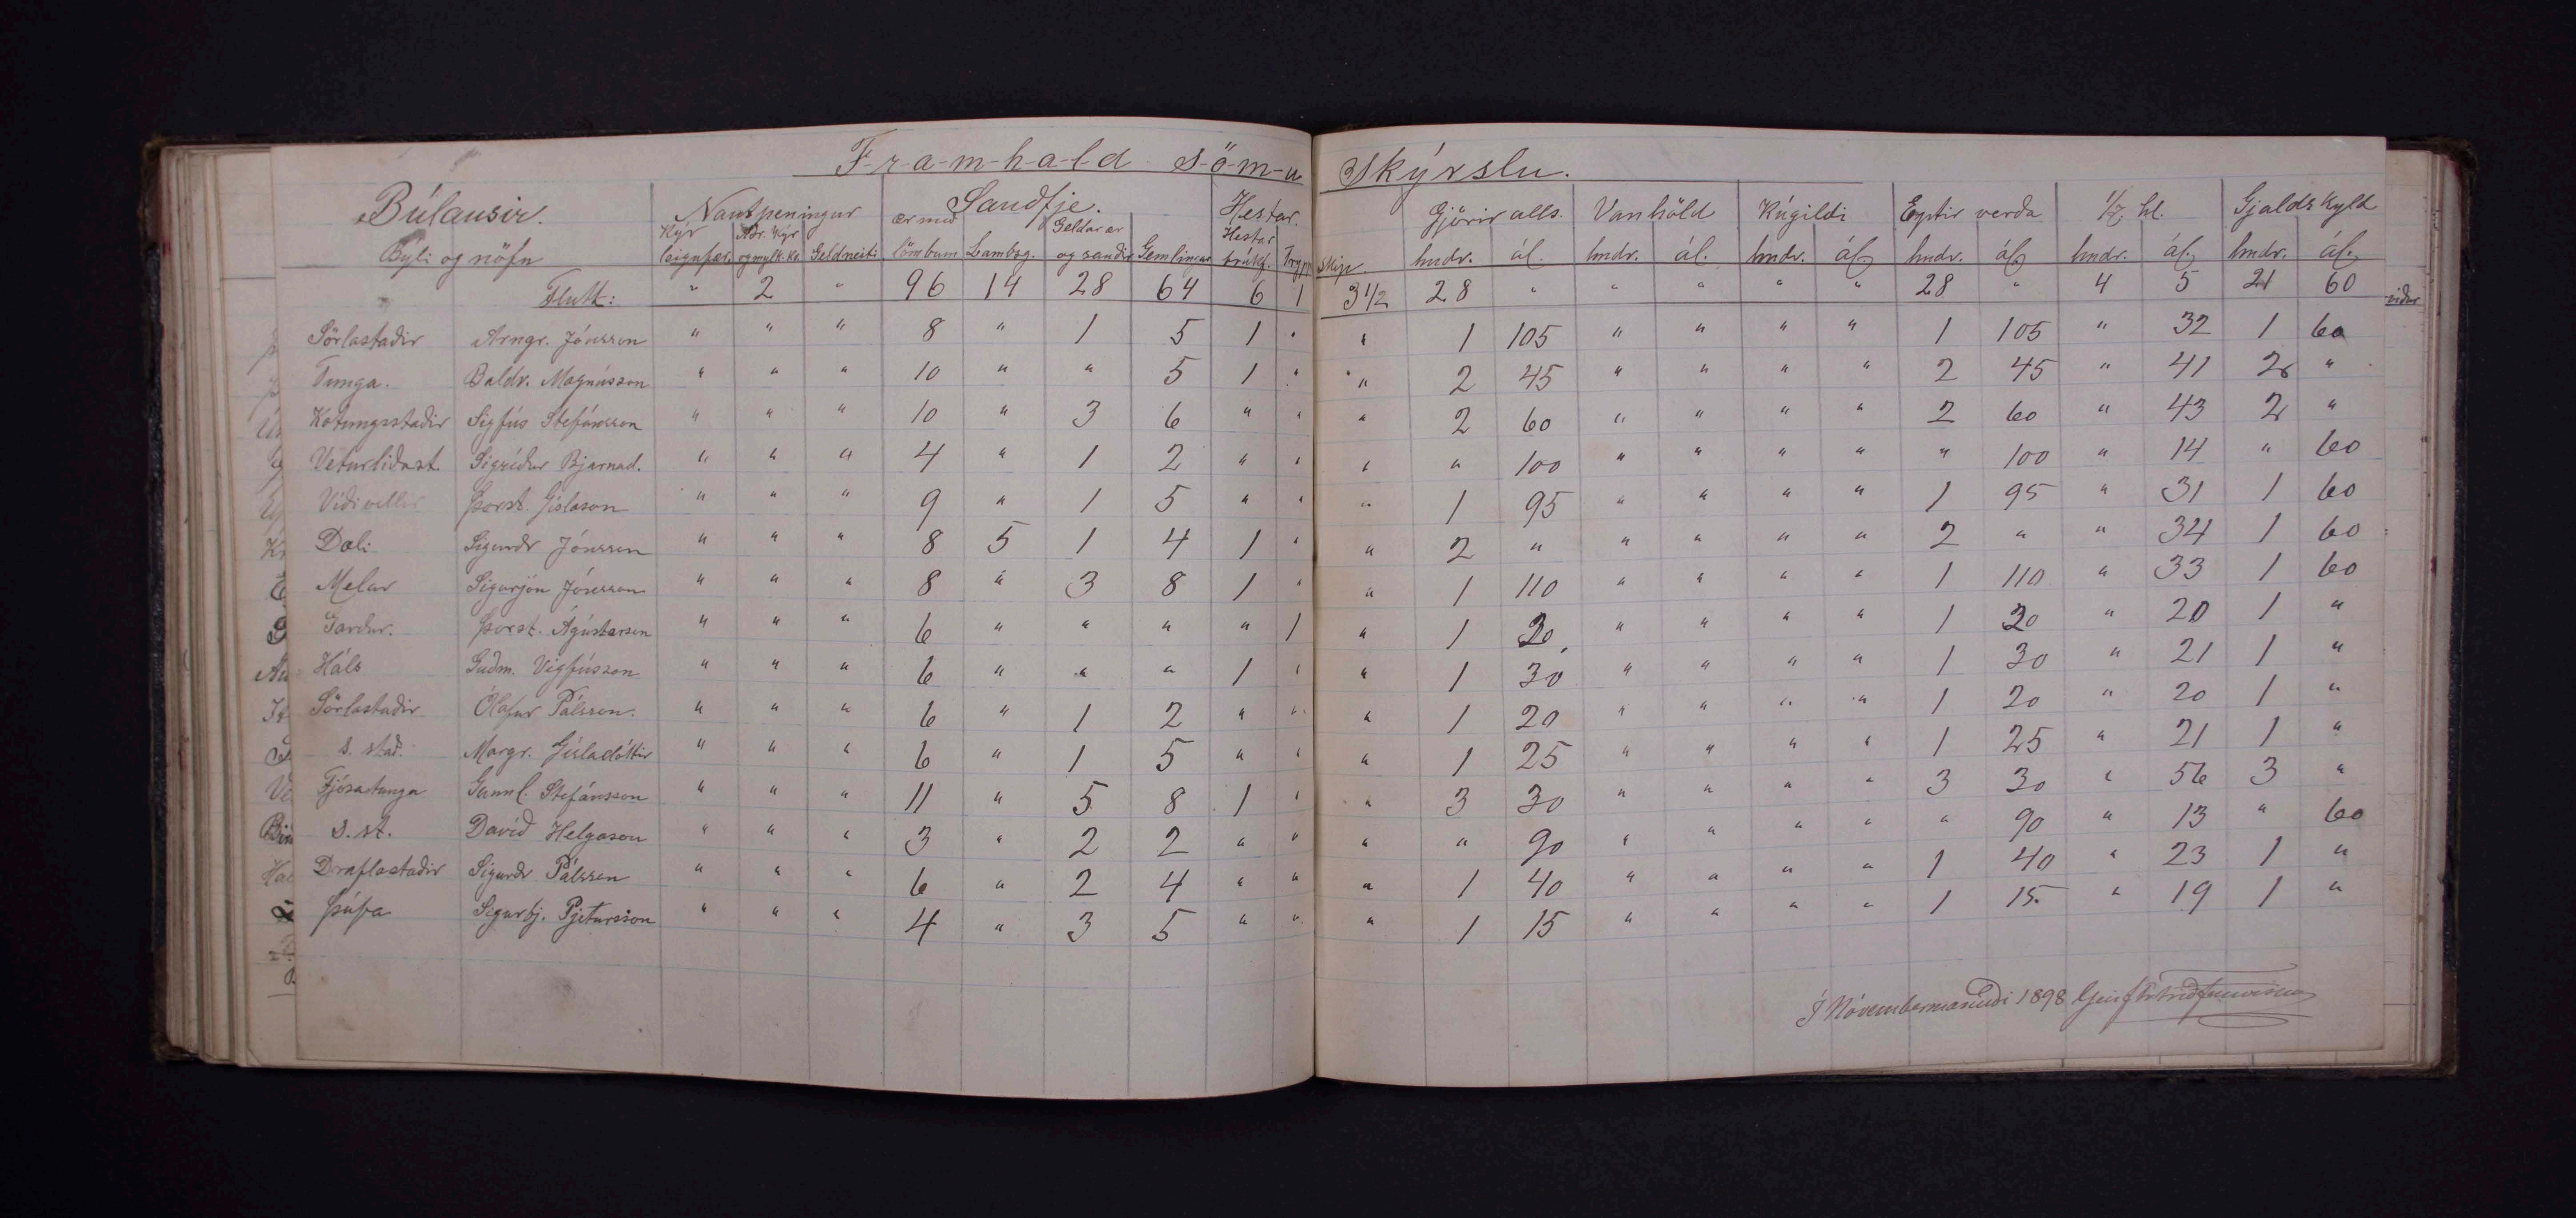 F-r-a-m-h-a-l-d s-ö-m-u skýrslu.
Búlausir. Nautpeningur Saudfje. Hestar. Gjörir alls. Vanhöld Kúgildi Eptir verða 1/7 hl. Gjaldskyld
Býli og nöfn Kýr leigufær. Aðr. kýr og mylk. kv. Geldneiti ær með lömbum Lambsg. Geldar ær og sauðir Gemlingar Hestar brúkf. Trypp Skip. hndr. ál. hndr. ál. hndr. ál. hndr. ál. hndr. ál. hndr. ál.
Flutt: " 2 " 96 14 28 64 6 1 3 1/2 28 " " " " " 28 " 4 5 21 60 viðar
Sörlastaðir Arngr. Jónsson " " " 8 " 1 5 1 " " 1 105 " " " " 1 105 " 32 1 60
Tunga. Baldv. Magnússon " " " 10 " " 5 1 " " 2 45 " " " " 2 45 " 41 2 "
Kotungsstaðir Sigfús Stefánsson " " " 10 " 3 6 " " " 2 60 " " " " 2 60 " 43 2 "
Veturliðast. Sigríður Bjarnad. " " " 4 " 1 2 " " " " 100 " " " " " 100 " 14 " 60
Víðivellir Þorst. Gíslason " " " 9 " 1 5 " " " 1 95 " " " " 1 95 " 31 1 60
Dæli Sigurðr Jónsson " " " 8 5 1 4 1 " " 2 " " " " " 2 " " 34 1 60
Melar Sigurjón Jónsson " " " 8 " 3 8 1 " " 1 110 " " " " 1 110 " 33 1 60
Garður. Þorst. Ágústarson " " " 6 " " " " 1 " 1 20 " " " " 1 20 " 20 1 "
Háls Guðm. Vigfússon " " " 6 " " " 1 " " 1 30 " " " " 1 30 " 21 1 "
Sörlastaðir Ólafur Pálsson. " " " 6 " 1 2 " " " 1 20 " " " " 1 20 " 20 1 "
s. stað. Margr. Gísladóttir " " " 6 " 1 5 " " " 1 25 " " " " 1 25 " 21 1 "
Fjósatunga Gunnl. Stefánsson " " " 11 " 5 8 1 " " 3 30 " " " " 3 30 " 56 3 "
s. st. Davíð Helgason " " " 3 " 2 2 " " " " 90 " " " " " 90 " 13 " 60
Draflastaðir Sigurðr Pálsson " " " 6 " 2 4 " " " 1 40 " " " " 1 40 " 23 1 "
Þúfa Sigurbj. Pjetursson " " " 4 " 3 5 " " " 1 15 " " " " 1 15 " 19 1 "
Í Nóvembermánuði 1898